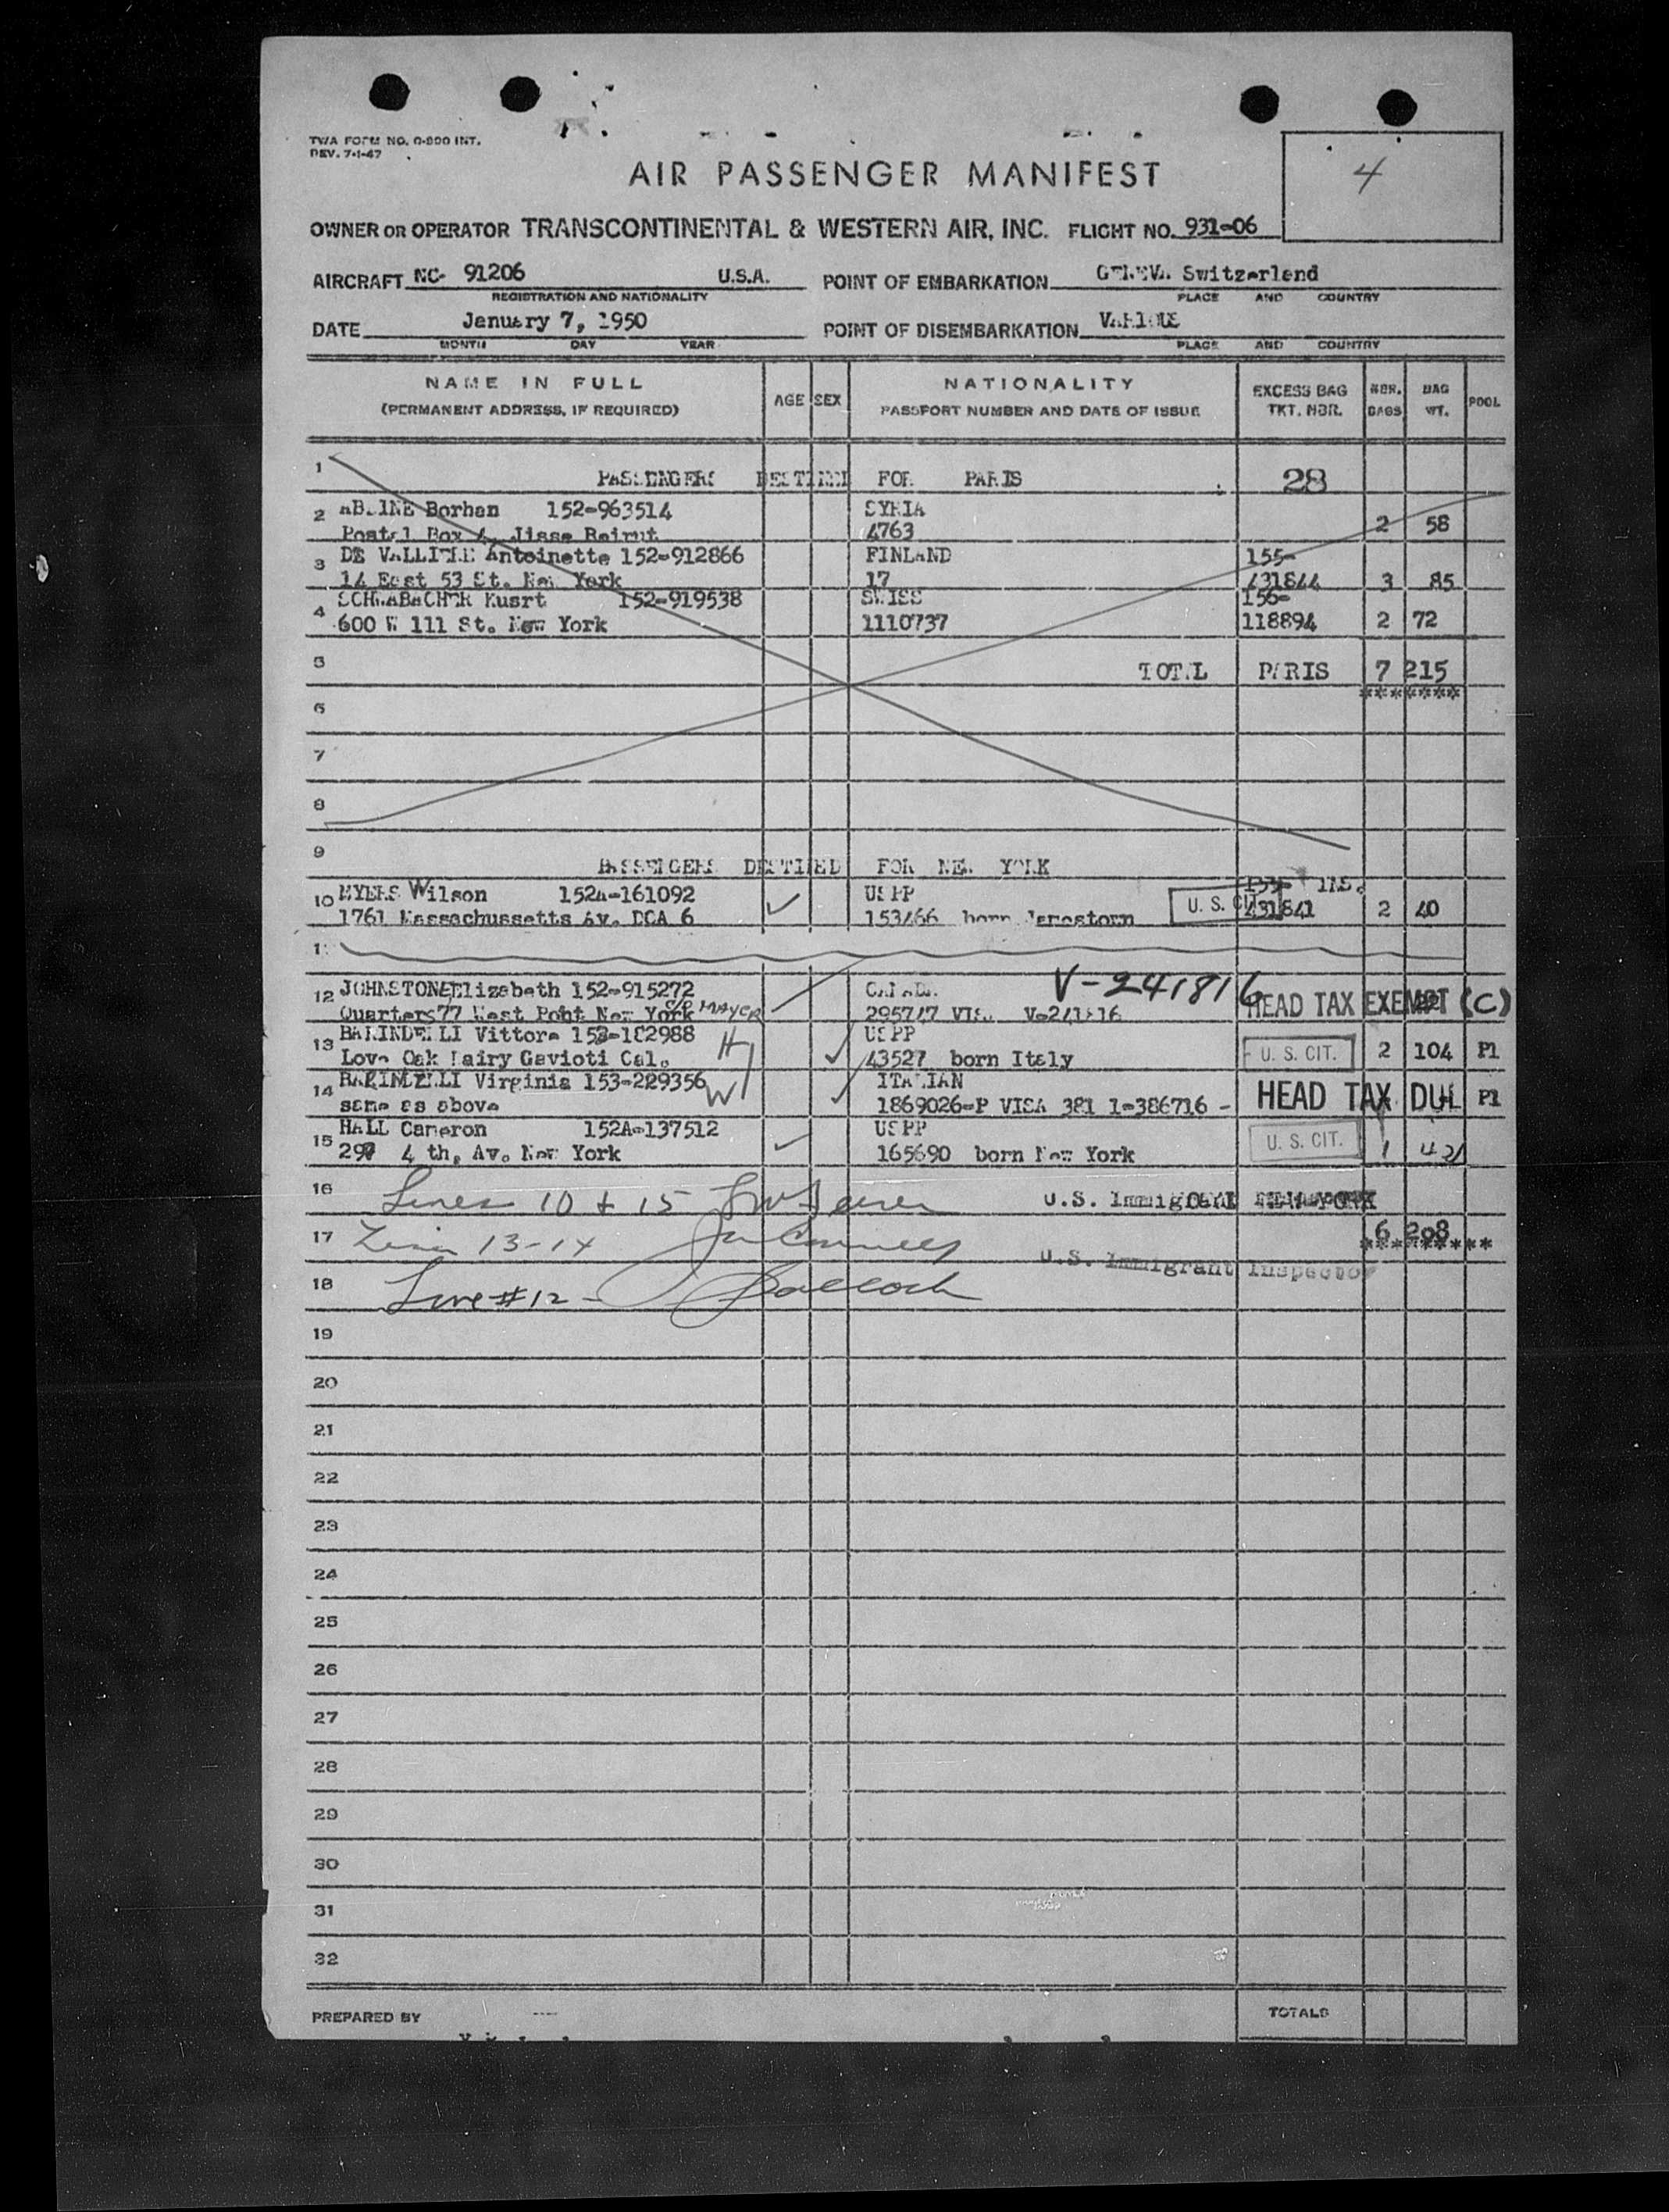 TWA FORM NO. 0-800 INT.
REV. 7-1-47
4
AIR PASSENGER MANIFEST
OWNER OR OPERATOR TRANSCONTINENTAL & WESTERN AIR, INC. FLIGHT NO. 931-06
AIRCRAFT NC- 91206 U.S.A. POINT OF EMBARKATION GENEVA Switzerland
REGISTRATION AND NATIONALITY PLACE AND COUNTRY
DATE January 7, 1950 POINT OF DISEMBARKATION VARIOUS
MONTH DAY YEAR PLACE AND COUNTRY
NAME IN FULL AGE SEX NATIONALITY EXCESS BAG NBR. BAG POOL
(PERMANENT ADDRESS, IF REQUIRED) PASSPORT NUMBER AND DATE OF ISSUE TKT. NBR. BAGS WT.
1 PASSENGERS DESTINED FOR PARIS 28
2 Borhan 152-963514 SYRIA
Postal Box Beirut 4763 2 58
3 DE Antoinette 152-912866 FINLAND 155-
14 East 53 St. New York 17 431844 3 85
4 SCHWABACHER Kusrt 152-919538 SWISS 156-
600 W 111 St. New York 1110737 118894 2 72
5 TOTAL PARIS 7 215
********
6
7
8
9 PASSENGERS DESTINED FOR NEW YORK
10 MYERS Wilson 152A-161092 USPP
1761 Massachussetts Av. DCA 6 153466 born Jamestown U. S. CIT. 431841 2 40
11
12 JOHNSTONE Elizabeth 152-915272 CANADA V-241816 HEAD TAX EXEMPT (C)
Quarters77 West Pont New York C/O MAYER 295747 VISA V-241816
13 BARINDELLI Vittore 153-182988 H USPP
Love Oak Dairy Gavioti Cal. 43527 born Italy U. S. CIT. 2 104 P1
14 BARINDELLI Virginia 153-229356 W ITALIAN
same as above 1869026-P VISA 381 1-386716 - HEAD TAX DUE P1
15 HALL Cameron 152A-137512 USPP
297 4 th, Av. New York 165690 born New York U. S. CIT. 1 42
16 Lines 10 + 15 U.S. Immigrant
17 13-14 6 208
*********
U.S. Immigrant Inspector
18 Line #12 -
19
20
21
22
23
24
25
26
27
28
29
30
31
32
PREPARED BY TOTALS